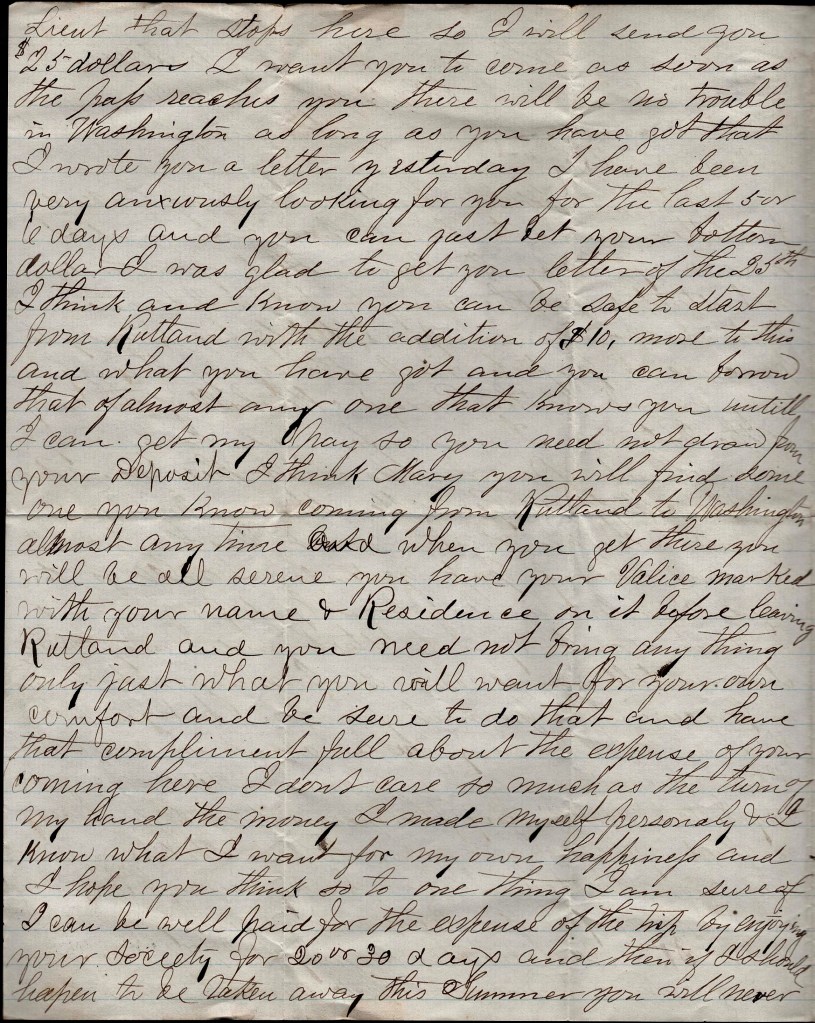 Lieut that stops here so I will send you
$25 dollars I want you to come as soon as
the pass reaches you there will be no trouble
in Washington as long as you have got that
I wrote you a letter yesturday I have been
very anxiously looking for you for the last 5 or
6 days and you can just bet your bottom
dollar I was glad to get you letter of the 25th
I think and know you can be safe to start
from Rutland with the addition of $10, more to this
and what you have got and you can borrow
that of almost any one that knows you untill
I can get my pay so you need not draw from
your Deposit I think Mary you will find some
one you know coming from Rutland to Washington
almost any time and when you get there you
will be all serene you have your Valice marked
with your name & Residence on it before leaving
Rutland and you need not bring any thing
only just what you will want for your own
comfort and be sure to do that and have
that compliment full about the expense of your
coming here I dont care so much as the turn of
my hand the money I made myself personaly & I
know what I want for my own happiness and
I hope you think so to one thing I am sure of
I can be well paid for the expense of the trip by enjoying
your Society for 20 or 30 days and then if I should
hapen to be taken away this Summer you will never